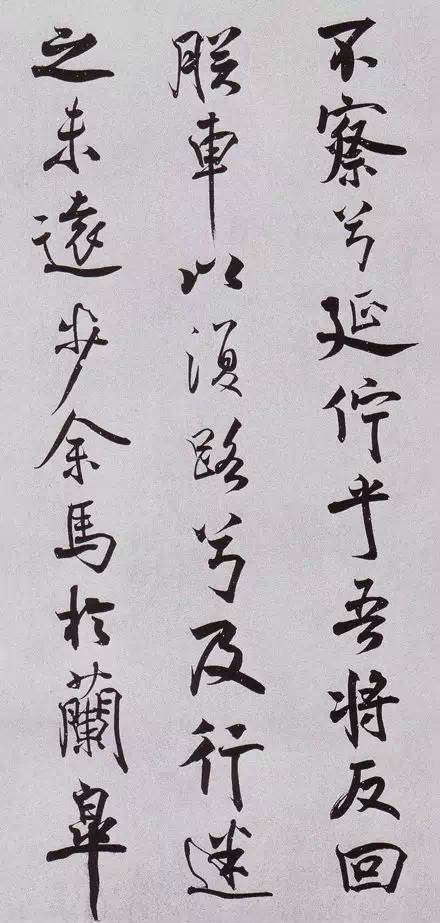 不察兮延佇乎吾将反回
朕車以復路兮及行迷
之未遠步余馬於蘭皐